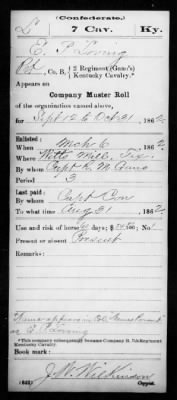 (Confederate.)
L 7 Cav. Ky.
E. P. Loving
Pvt, Co. B, 2 Regiment (Gano's) Kentucky Cavalry.*
Appears on
Company Muster Roll
of the organization named above,
for Sept 12 to Oct 31, 1862.
Enlisted:
When Mch 6, 1862.
Where Mill, Tex.
By whom Capt R. M. Gano
Period 3
Last paid:
By whom Capt
To what time Aug 31, 1862.
Use and risk of horse, days, $
Present or absent Present
Remarks:
Name appears in
as E. P. Loving
*This company subsequently became Company B, 7th Regiment Kentucky Cavalry.
Book mark:
J. W. Wilkinson
(642) Copyist.